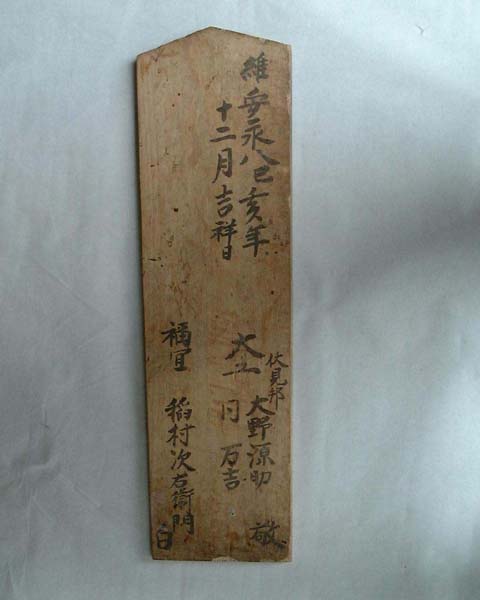 維安永八己亥年
十二月吉祥日
伏見邦
大工 大野源助 敬
同 万吉
福冝 稲村次右衛門 白